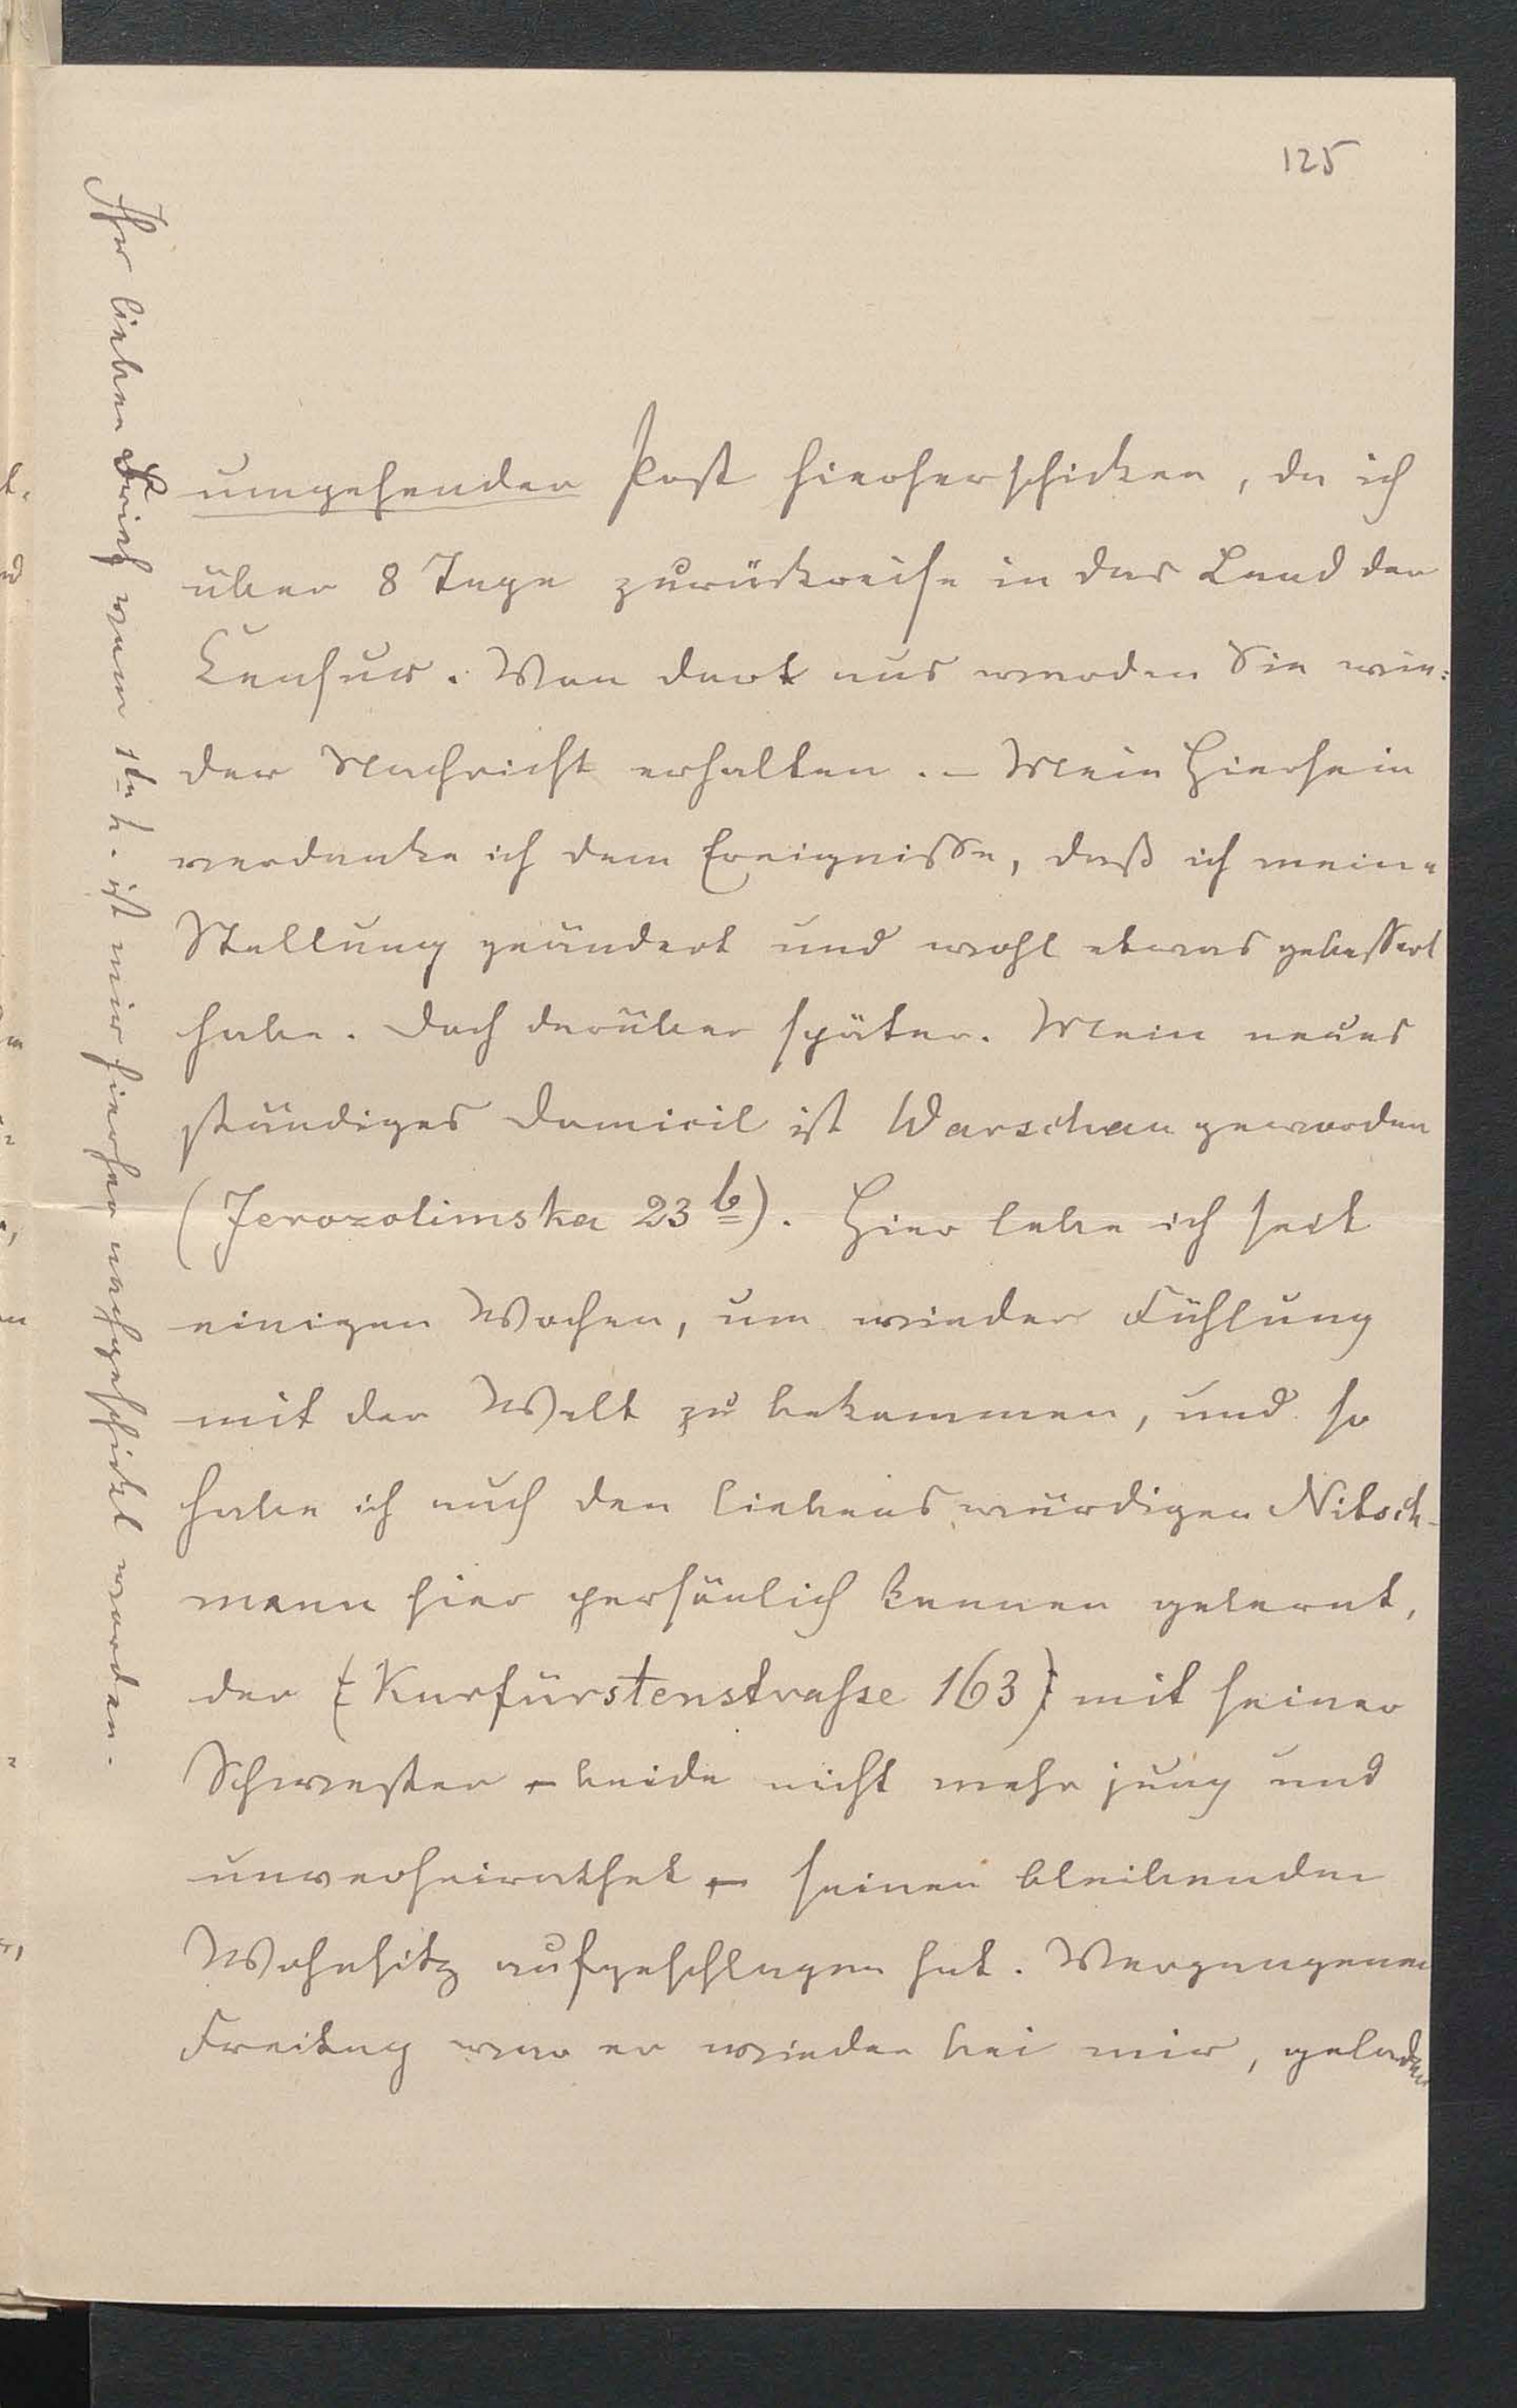 125
umgehender Post hierherschicken, da ich
über 8 Tage zurückreise in das Land der
Censur. Von dort aus werden Sie wie-
der Nachricht erhalten. – Mein Hiersein
verdanke ich dem Ereignisse, daß ich meine
Stellung geändert und wohl etwas gebessert
habe. Doch darüber später. Mein neues
ständiges Domicil ist Warschau geworden
(Jerozolimska 23 b). Hier lebe ich seit
einigen Wochen, um wieder Fühlung
mit der Welt zu bekommen, und so
habe ich auch den liebenswürdigen Nitsch-
mann hier persönlich kennen gelernt,
der (Kurfürstenstrasse 163) mit seiner
Schwester – beide nicht mehr jung und
unverheirathet – seinen bleibenden
Wohnsitz aufgeschlagen hat. Vergangenen
Freitag war er wieder bei mir, geladen
Ihr lieber Brief vom 1ten h. ist mir hierher nachgeschickt worden.